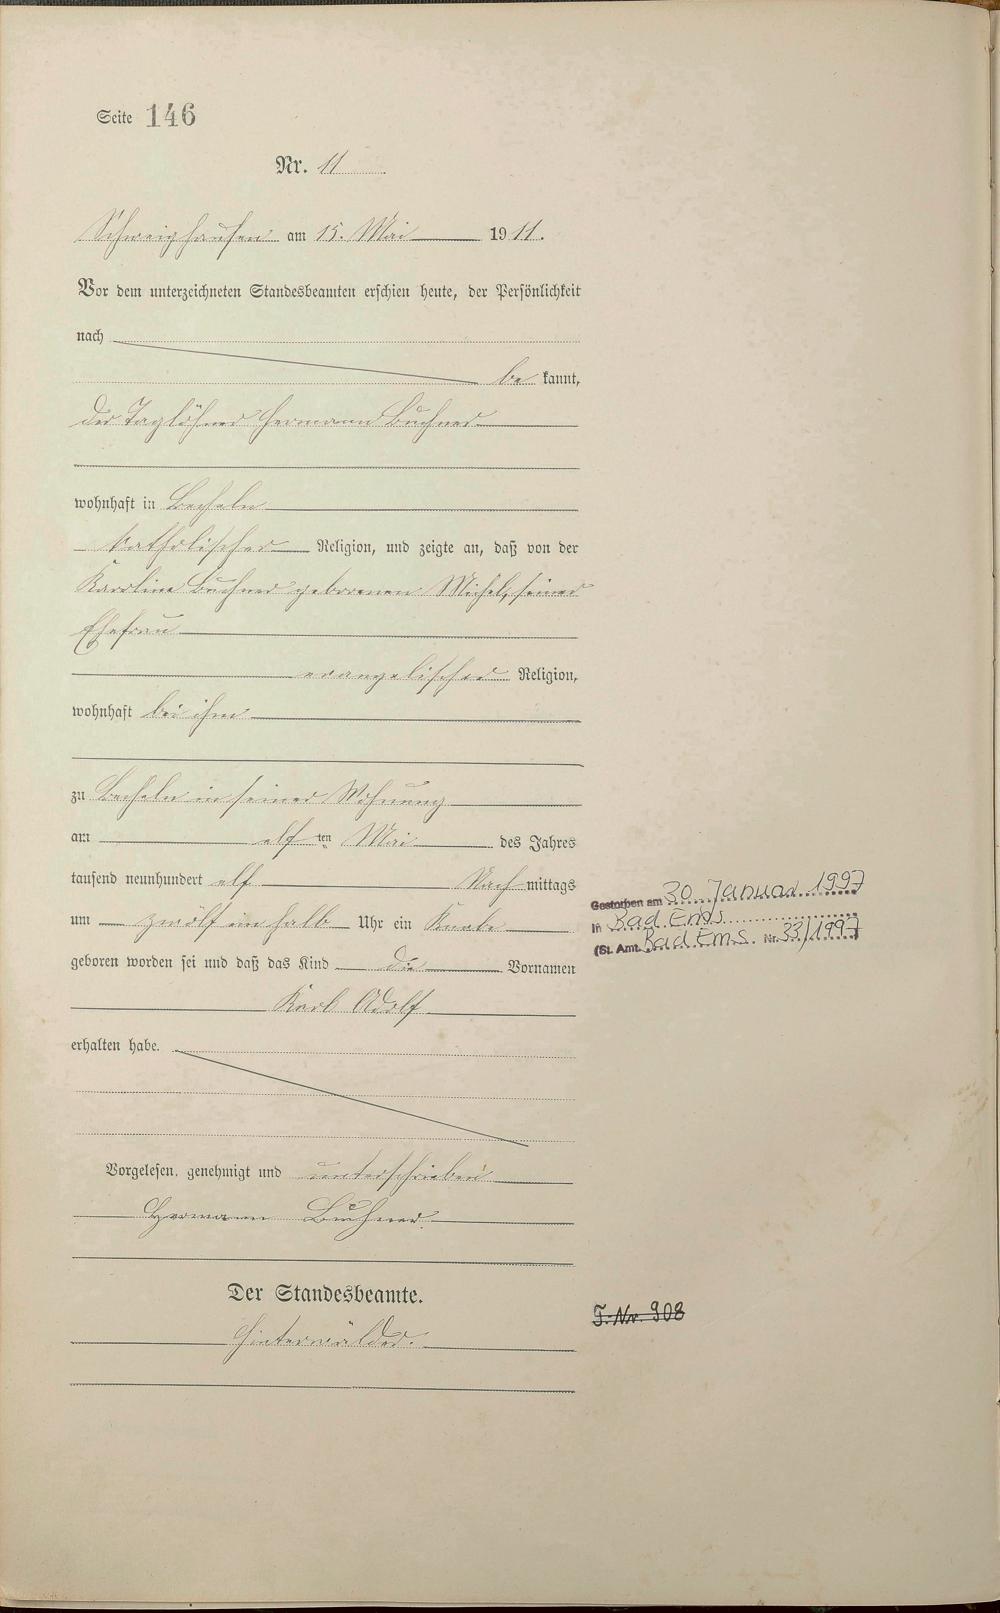 Seite 146
Nr. 11
Schweighausen am 15. Mai 1911.
Vor dem unterzeichneten Standesbeamten erschien heute, der Persönlichkeit
nach
be kannt,
der Taglöhner Hermann Buchner
wohnhaft in Becheln
katholischer Religion, und zeigte an, daß von der
Karoline Buchner geborenen Michel, seiner
Ehefrau
evangelischer Religion,
wohnhaft bei ihm
zu Becheln in seiner Wohnung
am elf ten Mai des Jahres
tausend neunhundert elf Nach mittags
um zwölf ein halb Uhr ein Knabe
geboren worden sei und daß das Kind die Vornamen
Karl Adolf
erhalten habe.
Vorgelesen, genehmigt und unterschrieben
Hermann Buchner.
Der Standesbeamte.
Hinterwälder.
Gestorben am 30. Januar 1997
in Bad Ems
(St. Amt. Bad Ems. Nr. 33/1997)
T. Nr. 908